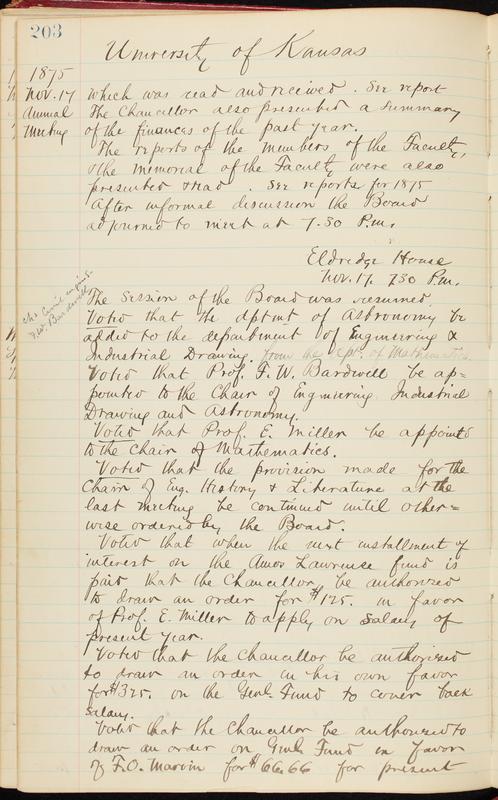 203
University of Kansas
1875
Nov. 17
Annual
Meeting
which was read and received. See report
The Chancellor also presented a summary
of the finances of the past year.
The reports of the members of the Faculty,
& the memorial of the Faculty were also
presented & read. See reports for 1875
After informal discussion the Board
adjourned to meet at 7.30 P.m.
Eldredge House
Nov. 17. 7.30 P.m.
Chr. Civil Engin.
F.W. Bardwell
The Session of the Board was resumed.
Voted that the dptmt of Astronomy be
added to the department of Engineering &
Industrial Drawing. from the dept. of Mathematics.
Voted that Prof. F. W. Bardwell be ap=
pointed to the Chair of Engineering. Industrial
Drawing and Astronomy.
Voted that Prof. E. Miller be appointed
to the Chair of Mathematics.
Voted that the provision made for the
Chair of Eng. History & Literature at the
last meeting be continued until other=
wise ordered by the Board.
Voted that when the next installment of
interest on the Amos Lawrence fund is
paid that the Chancellor be authorized
to draw an order for $125. in favor
of Prof. E. Miller to apply on salary of
present year.
Voted that the Chancellor be authorized
to draw an order in his own favor
for $325. on the Genl. Fund to cover back
salary.
Voted that the Chancellor be authorized to
draw an order on Genl Fund in favor
of F. O. Marvin for $66.66 for present